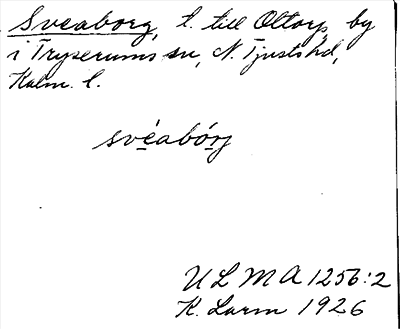 Sveaborg, l. till Oltorp, by
i Tryserums sn, N. Tjusts hd,
Kalm. l.
svéabórj
ULMA 1256:2
K. Larm 1926